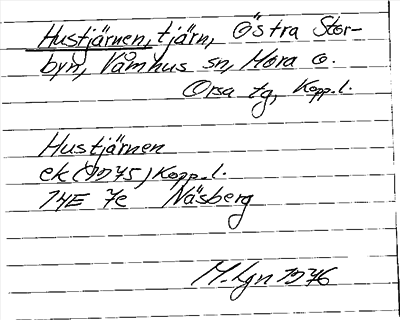 Hustjärnen, tjärn, Östra Stor-
byn, Våmhus sn, Mora o.
Orsa tg, Kopp.l.
Hustjärnen
ek (1975) Kopp.l.
14E 7e Näsberg
M. Lgn 1976